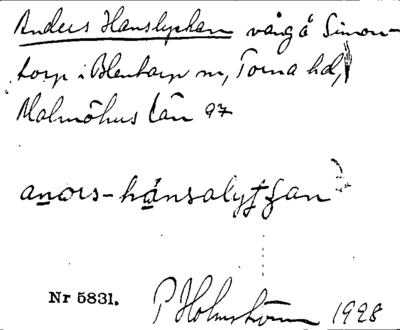 Anders Hanslyckan vång å Simon-
torp i Blentarp sn, Torna hd,
Malmöhus län 97
anors-hánsalyţţan
Nr 5831. P Holmström 1928